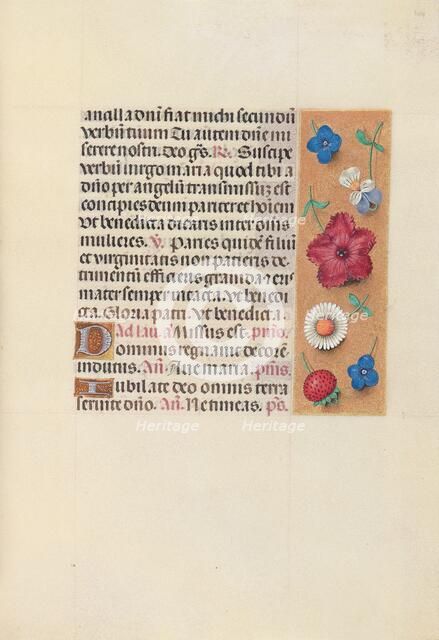 ancilla dn̄i fiat michi secundū
verbū tuum Tu autem dn̄e mi
serere nostri. deo grs̄. R̄. Suscipe
verbū virgo maria quod tibi a
dn̄o per angelū transmissū est
concipies deum pariter et hoīem
Vt benedicta dicaris inter om̄s
mulieres. V. Paries quidē filiū
et virginitatis non patieris de
trimentū efficieris grauida et eris
mater semper intacta. Vt benedi
cta. Gloria patri. Vt benedicta.
Ad lau. a Missus est. ps̄us.
Dominus regnauit decorē
indutus. Añ. Aue maria. ps̄us.
Iubilate deo omnis terra
seruite dn̄o. Añ. Ne timeas. ps̄.
Heritage Heritage